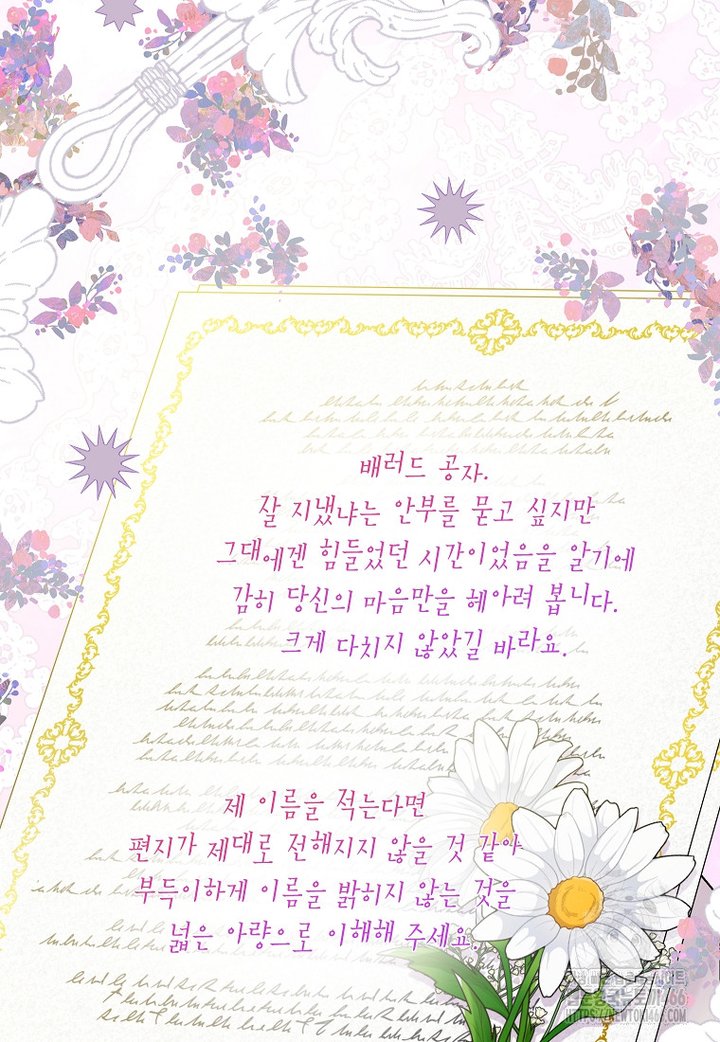 배러드 공자.
잘 지냈냐는 안부를 묻고 싶지만
그대에겐 힘들었던 시간이었음을 알기에
감히 당신의 마음만을 헤아려 봅니다.
크게 다치지 않았길 바라요.
제 이름을 적는다면
편지가 제대로 전해지지 않을 것 같아
부득이하게 이름을 밝히지 않는 것을
넓은 아량으로 이해해 주세요.
HTTPS://NEWTOKI466.COM